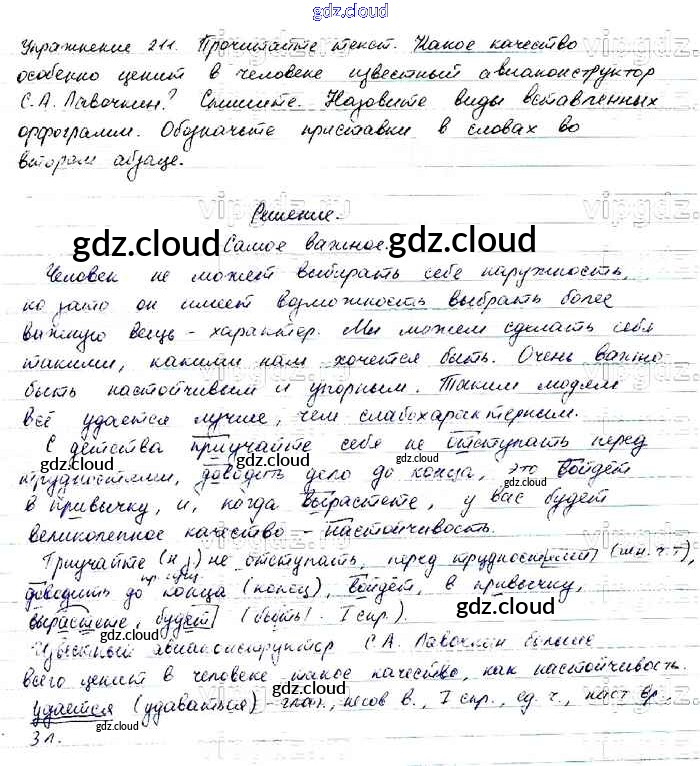 gdz.cloud
Упражнение 211. Прочитайте текст. Какое качество
особенно ценит в человеке известный авиаконструктор
С.А. Лавочкин? Спишите. Назовите виды вставленных
орфограмм. Обозначьте приставки в словах во
втором абзаце.
Решение.
gdz.cloud gdz.cloud
Самое важное.
Человек не может выбирать себе наружность,
но зато он имеет возможность выбрать более
важную вещь - характер. Мы можем сделать себя
такими, какими нам хочется быть. Очень важно
быть настойчивым и упорным. Таким людям
всё удается лучше, чем слабохарактерным.
С детства приучайте себя не отступать перед
gdz.cloud gdz.cloud
трудностями, доводить дело до конца, это войдёт
в привычку, и, когда вырастете, у вас будет
великолепное качество - настойчивость.
Приучайте (н.) не отступать, перед трудностями (мн. ч. т),
доводить до конца (конец), войдёт, в привычку,
gdz.cloud
вырастете, будет (быть) - I спр.).
gdz.cloud gdz.cloud
Известный авиаконструктор С.А. Лавочкин больше
всего ценит в человеке такое качество, как настойчивость.
gdz.cloud
удается (удаваться) - глаг., несов в., I спр., ед. ч., наст вр.,
3 л.
gdz.cloud gdz.cloud